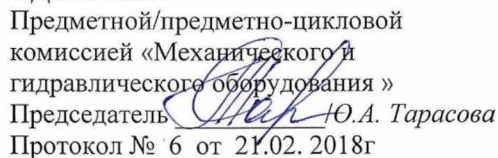 Предметной/предметно-цикловой
комиссией «Механического и
гидравлического оборудования »
Председатель ____________/О.А. Тарасова
Протокол № 6 от 21.02. 2018г